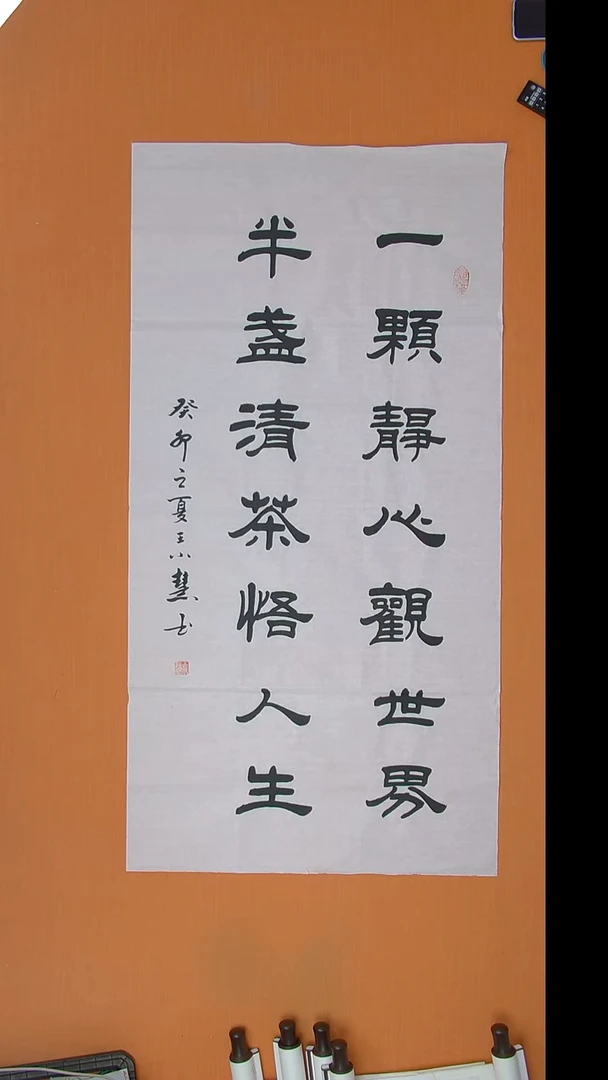 一顆靜心觀世界
半盞清茶悟人生
癸卯之夏王小慧书